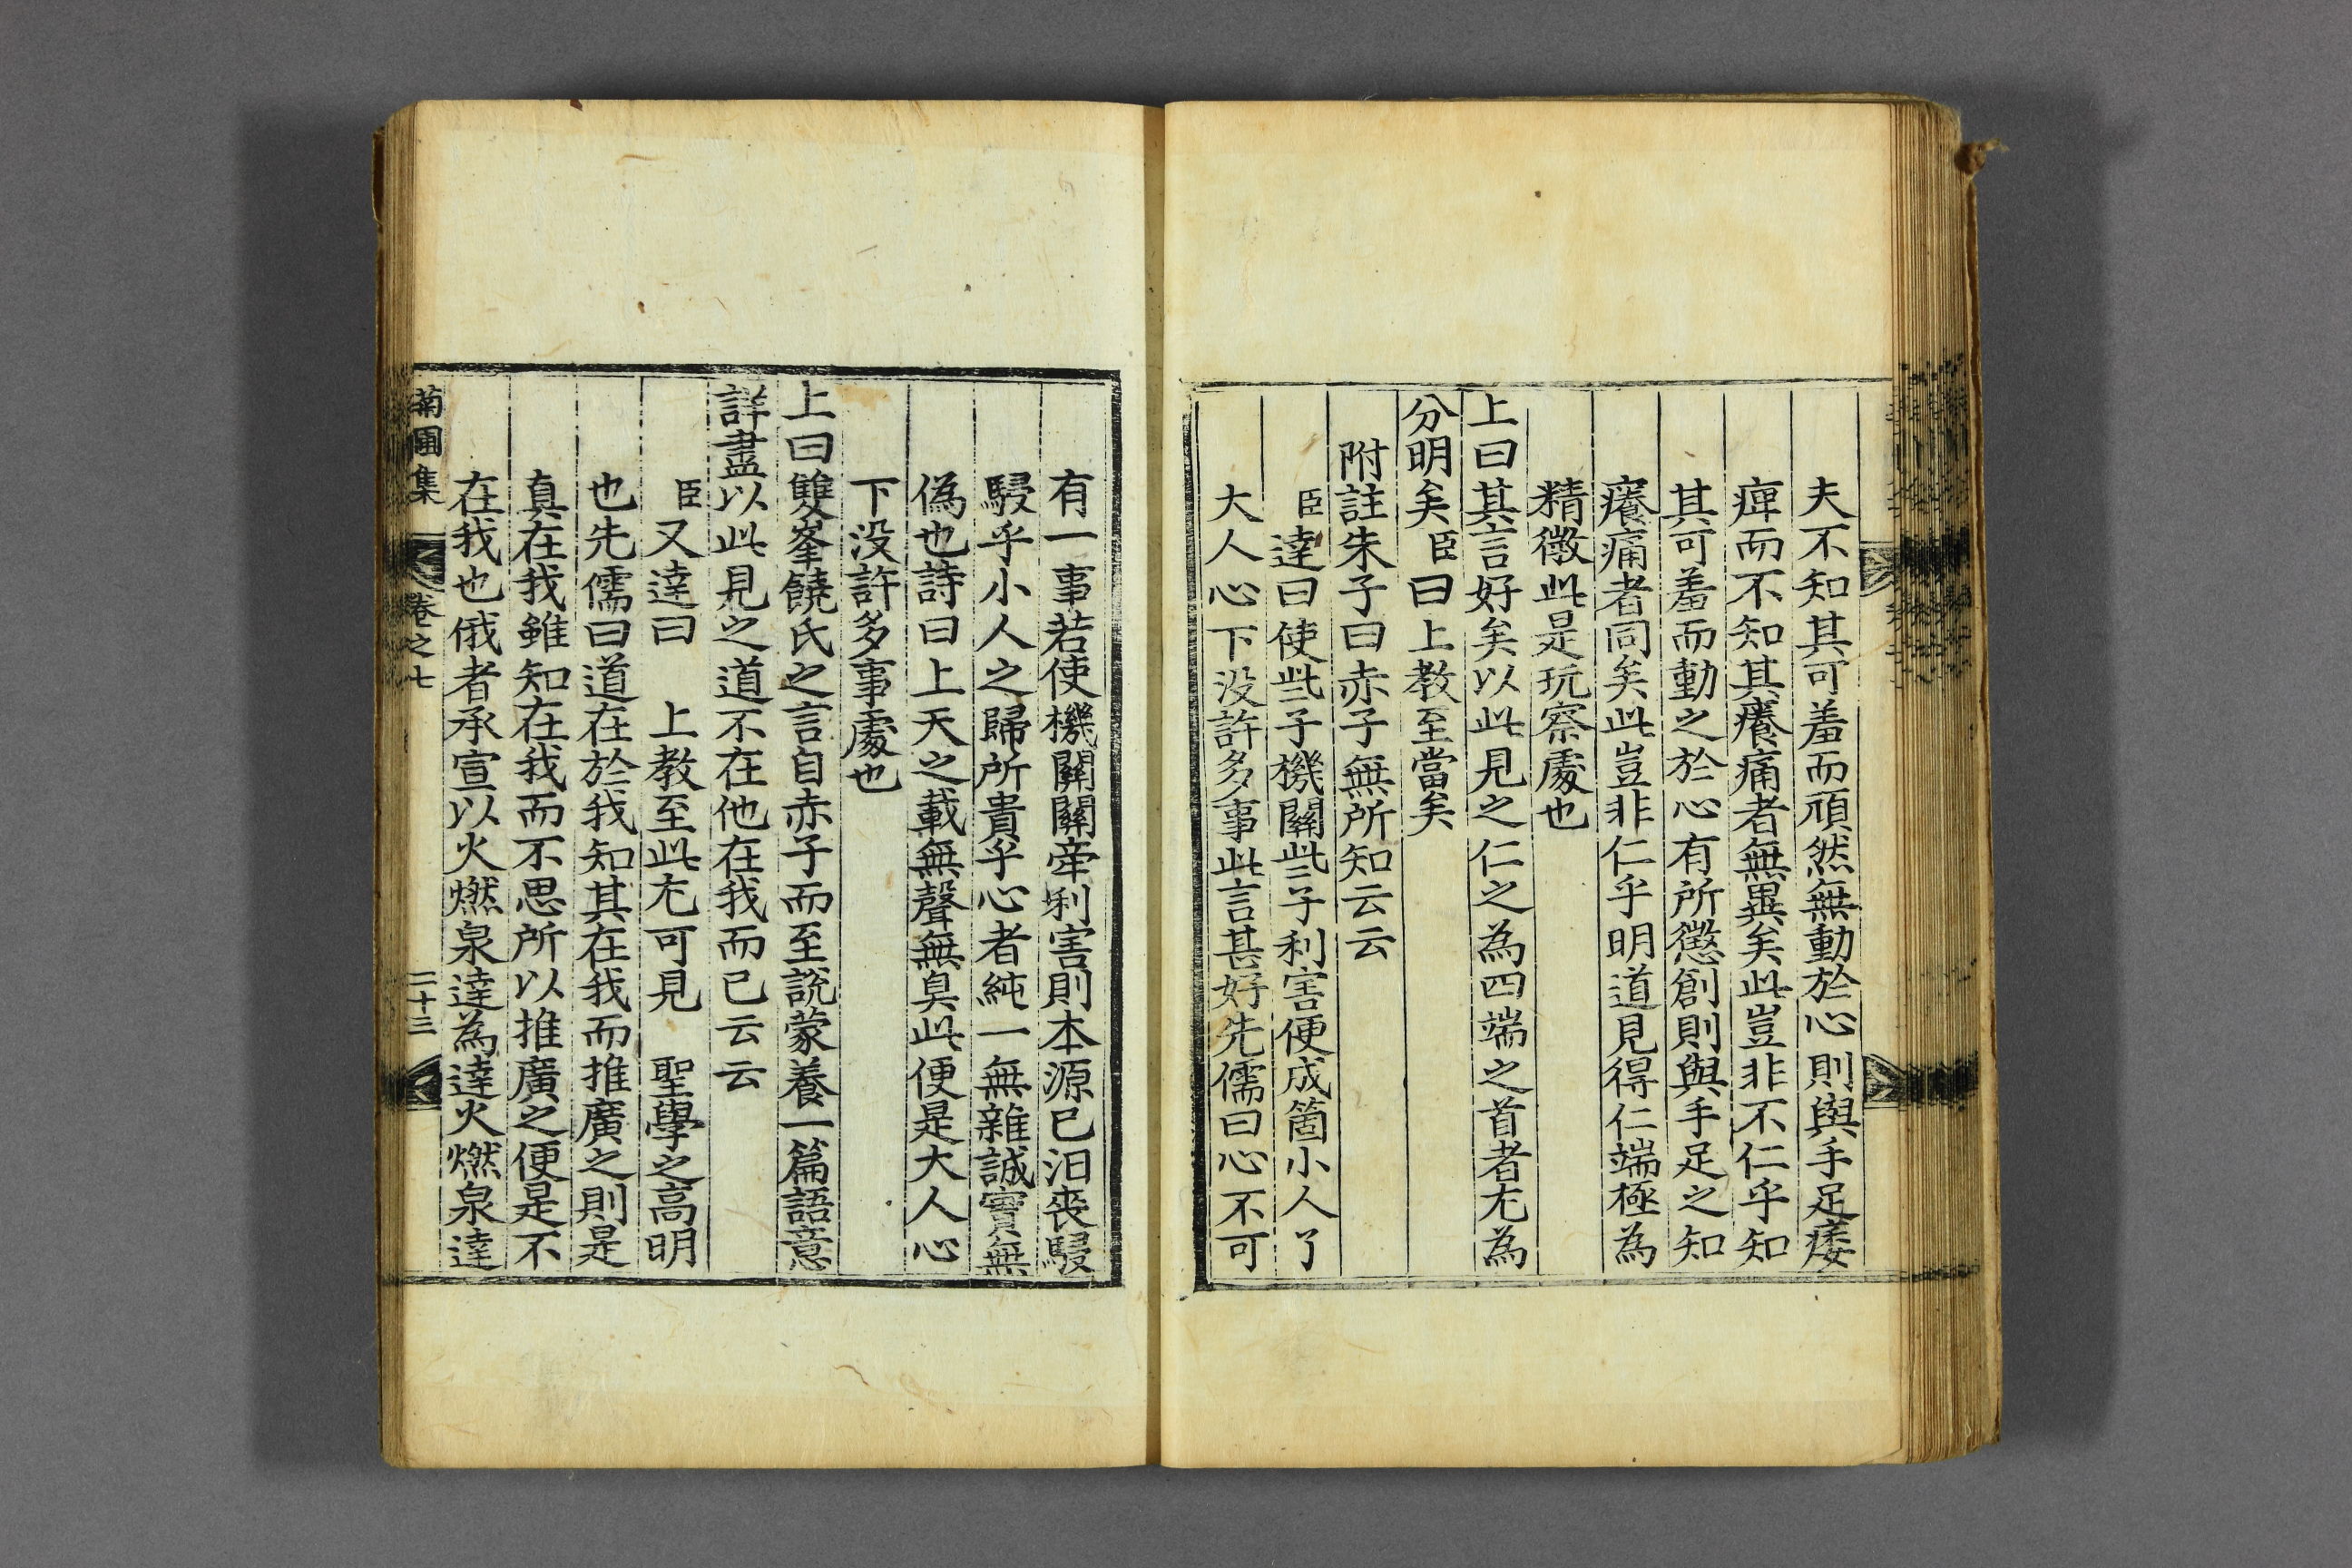 夫不知其可羞而頑然無動於心則與手足痿
痺而不知其癢痛者無異矣此豈非不仁乎知
其可羞而動之於心有所懲創則與手足之知
癢痛者同矣此豈非仁乎明道見得仁端極為
精微此是玩察處也
上曰其言好矣以此見之仁之為四端之首者尤為
分明矣臣曰上教至當矣
附註朱子曰赤子無所知云云
臣達曰使些子機關些子利害便成箇小人了
大人心下沒許多事此言甚好先儒曰心不可
有一事若使機關關牽利害則本源已汨喪駸
駸乎小人之歸所貴乎心者純一無雜誠實無
偽也詩曰上天之載無聲無臭此便是大人心
下沒許多事處也
上曰雙峯饒氏之言自赤子而至說蒙養一篇語意
詳盡以此見之道不在他在我而已云云
臣又達曰 上教至此尤可見 聖學之高明
也先儒曰道在於我知其在我而推廣之則是
真在我雖知在我而不思所以推廣之便是不
在我也俄者承宣以火燃泉達為達火燃泉達
菊圃集 卷之七 二十三